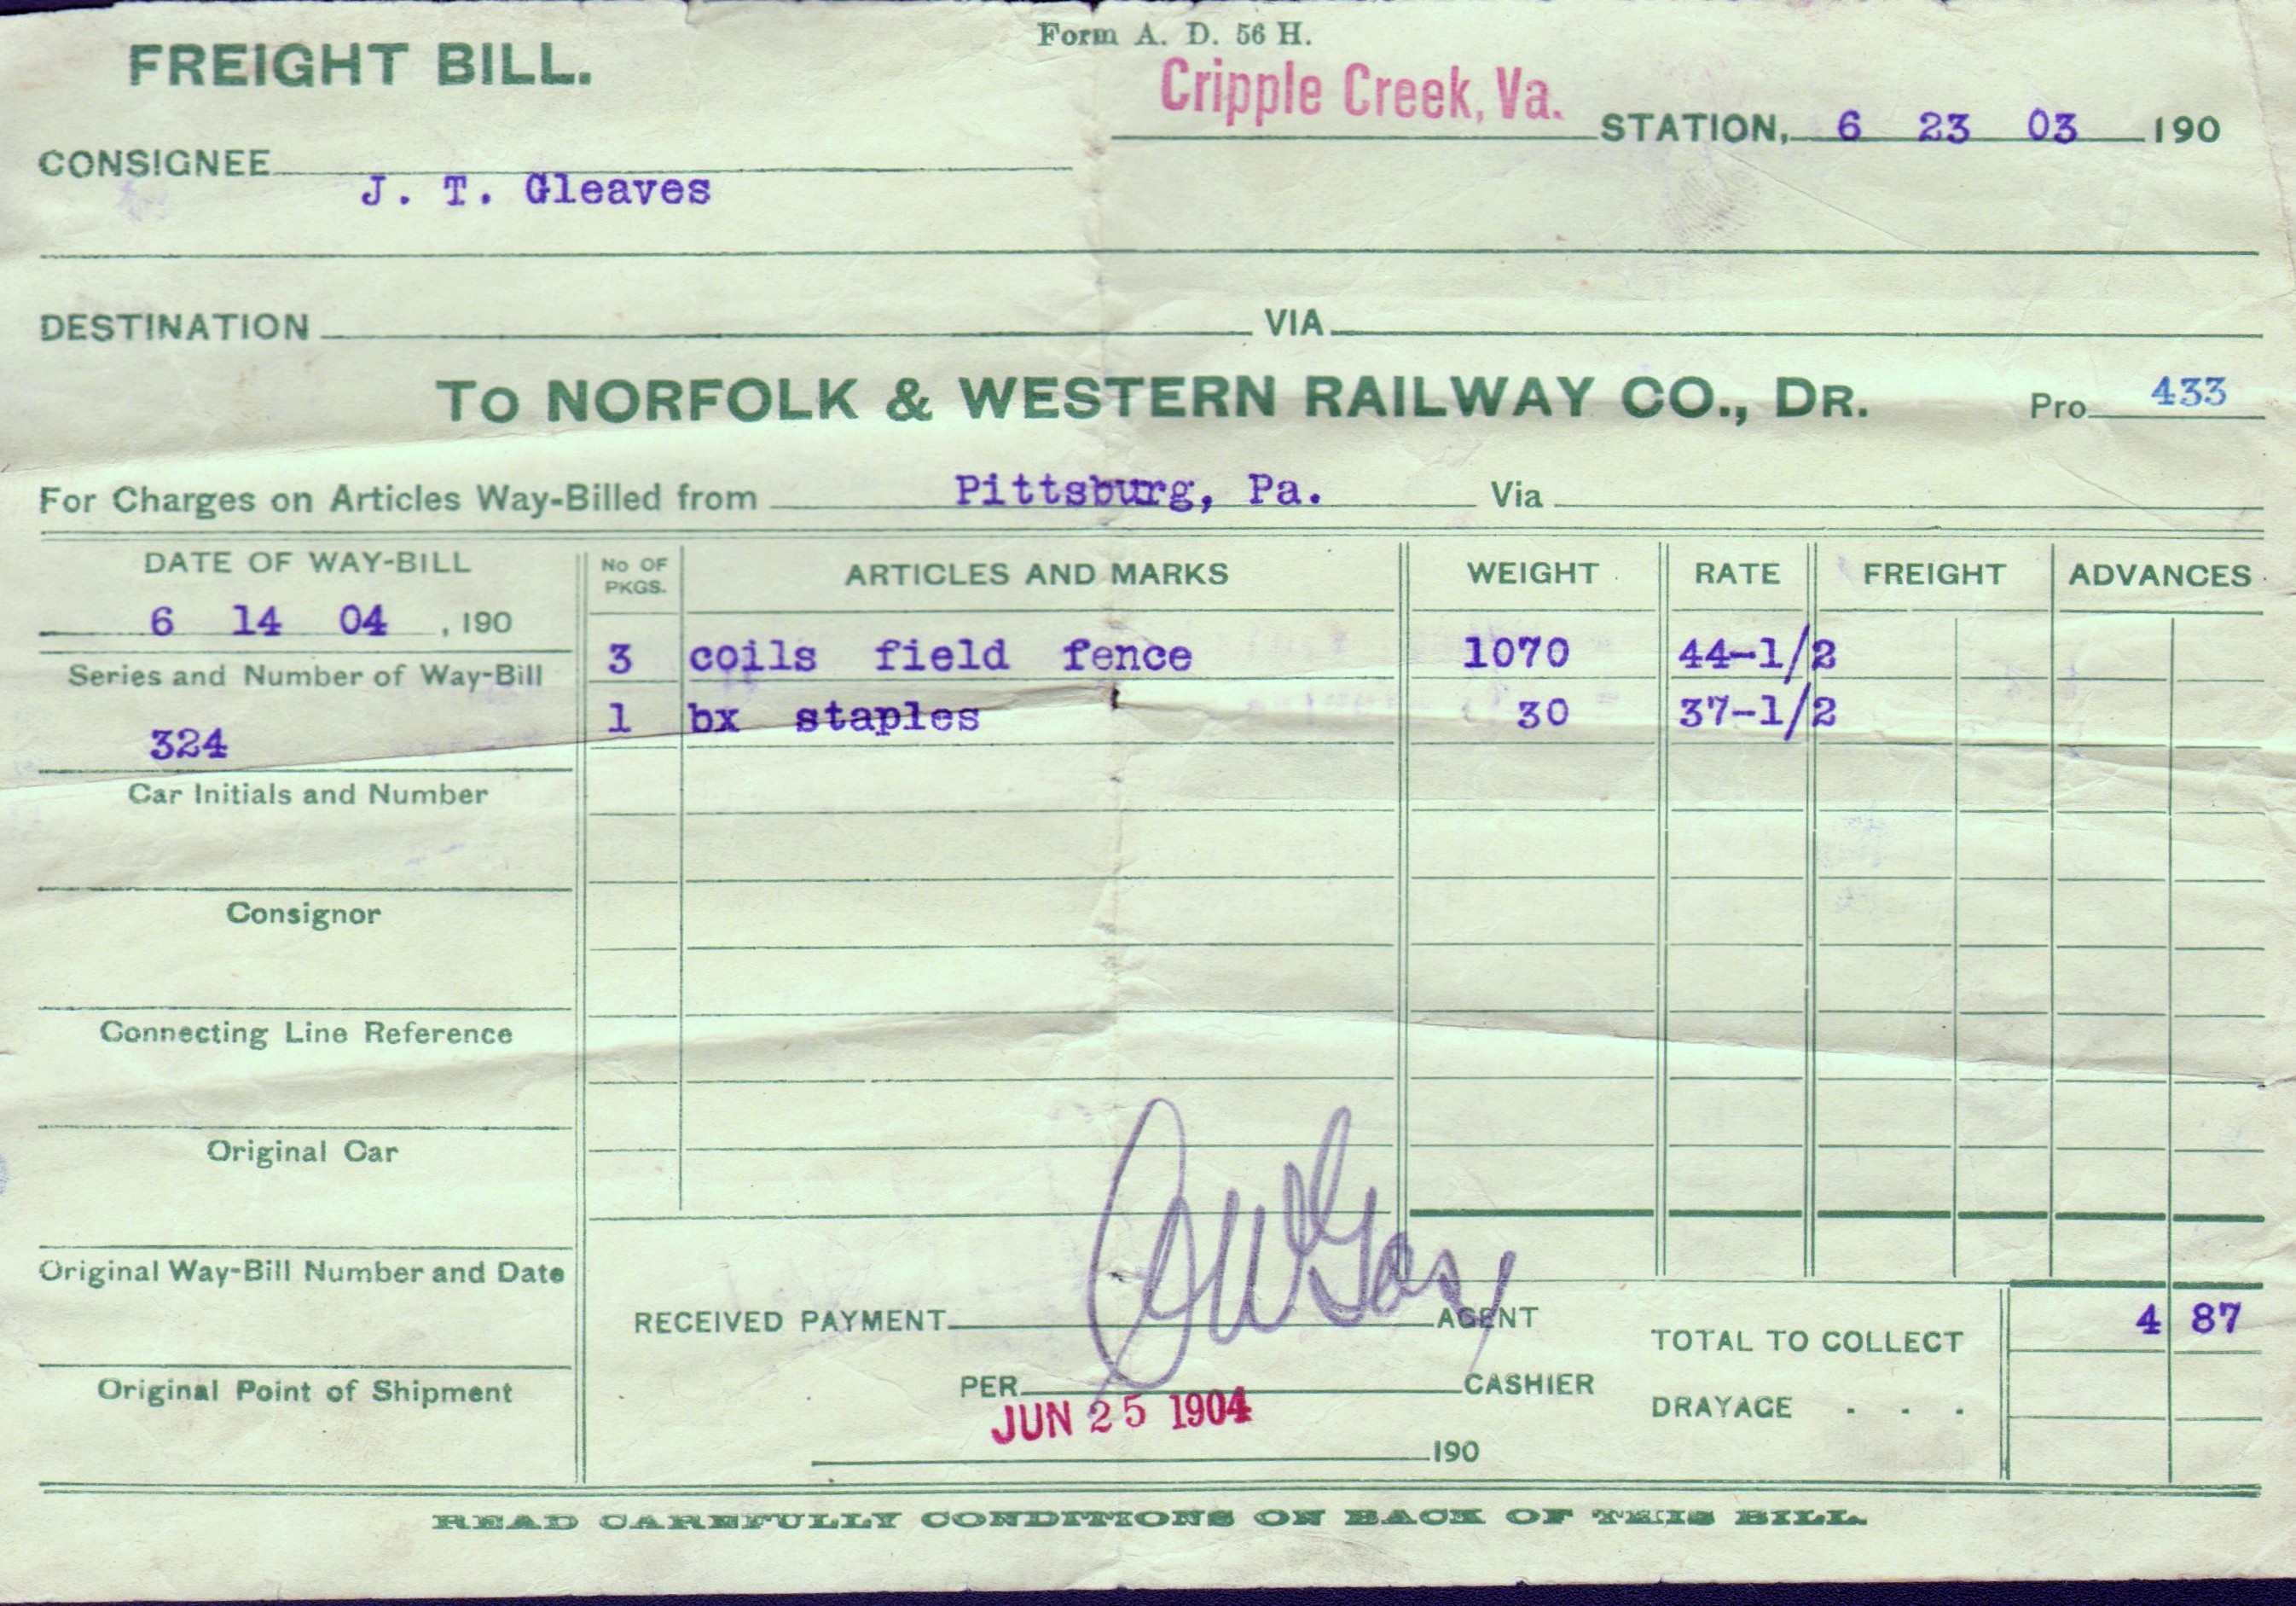 Form A. D. 56 H.
FREIGHT BILL.
Cripple Creek, Va. STATION, 6 23 03 190
CONSIGNEE J. T. Gleaves
DESTINATION VIA
To NORFOLK & WESTERN RAILWAY CO., DR. Pro 433
For Charges on Articles Way-Billed from Pittsburg, Pa. Via
DATE OF WAY-BILL
6 14 04 , 190
Series and Number of Way-Bill
324
Car Initials and Number
Consignor
Connecting Line Reference
Original Car
Original Way-Bill Number and Date
Original Point of Shipment
No OF PKGS. ARTICLES AND MARKS WEIGHT RATE FREIGHT ADVANCES
3 coils field fence 1070 44-1/2
1 bx staples 30 37-1/2
RECEIVED PAYMENT AGENT
PER CASHIER
JUN 25 1904
190
TOTAL TO COLLECT 4 87
DRAYAGE . . .
READ CAREFULLY CONDITIONS ON BACK OF THIS BILL.